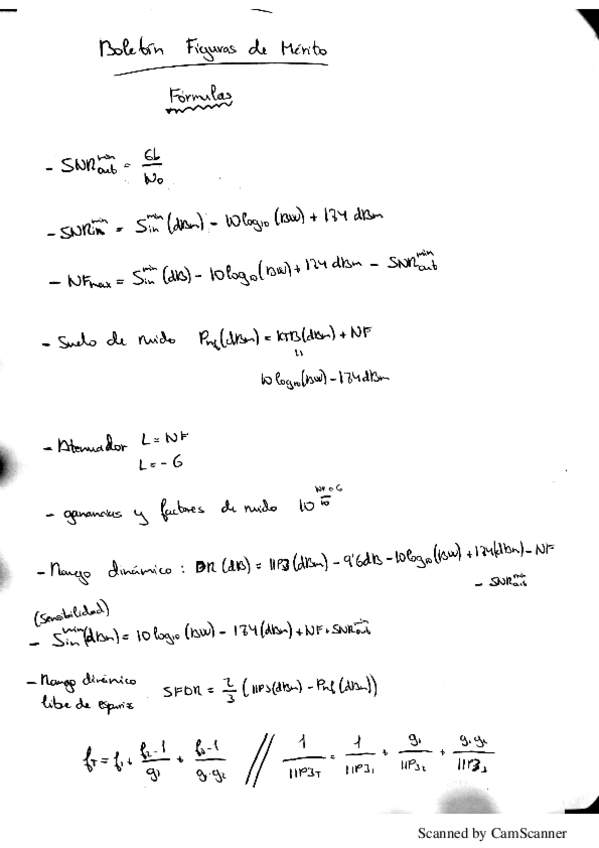 Boletín Figuras de Mérito
Fórmulas
- SNR_out^min = Eb/No
- SNR_in^min = S_in^min (dBm) - 10 log10 (BW) + 174 dBm
- NFmax = S_in^min (dB) - 10 log10 (BW) + 174 dBm - SNR_out^min
- Suelo de ruido Pnf (dBm) = KTB (dBm) + NF
10 log10 (BW) - 174 dBm
- Atenuador L = NF
L = - G
- ganancias y factores de ruido 10^(NF o G/10)
- Rango dinámico : DR (dB) = IIP3 (dBm) - 9'6 dB - 10 log10 (BW) + 174 (dBm) - NF
- SNR_out^min
(Sensibilidad)
- S_in^min (dBm) = 10 log10 (BW) - 174 (dBm) + NF + SNR_out^min
- Rango dinámico
libre de espurios SFDR = 2/3 (IIP3 (dBm) - Pnf (dBm))
fT = f1 + (f2 - 1)/g1 + (f3 - 1)/(g1·g2) // 1/IIP3T = 1/IIP31 + g1/IIP32 + g1·g2/IIP33
Scanned by CamScanner